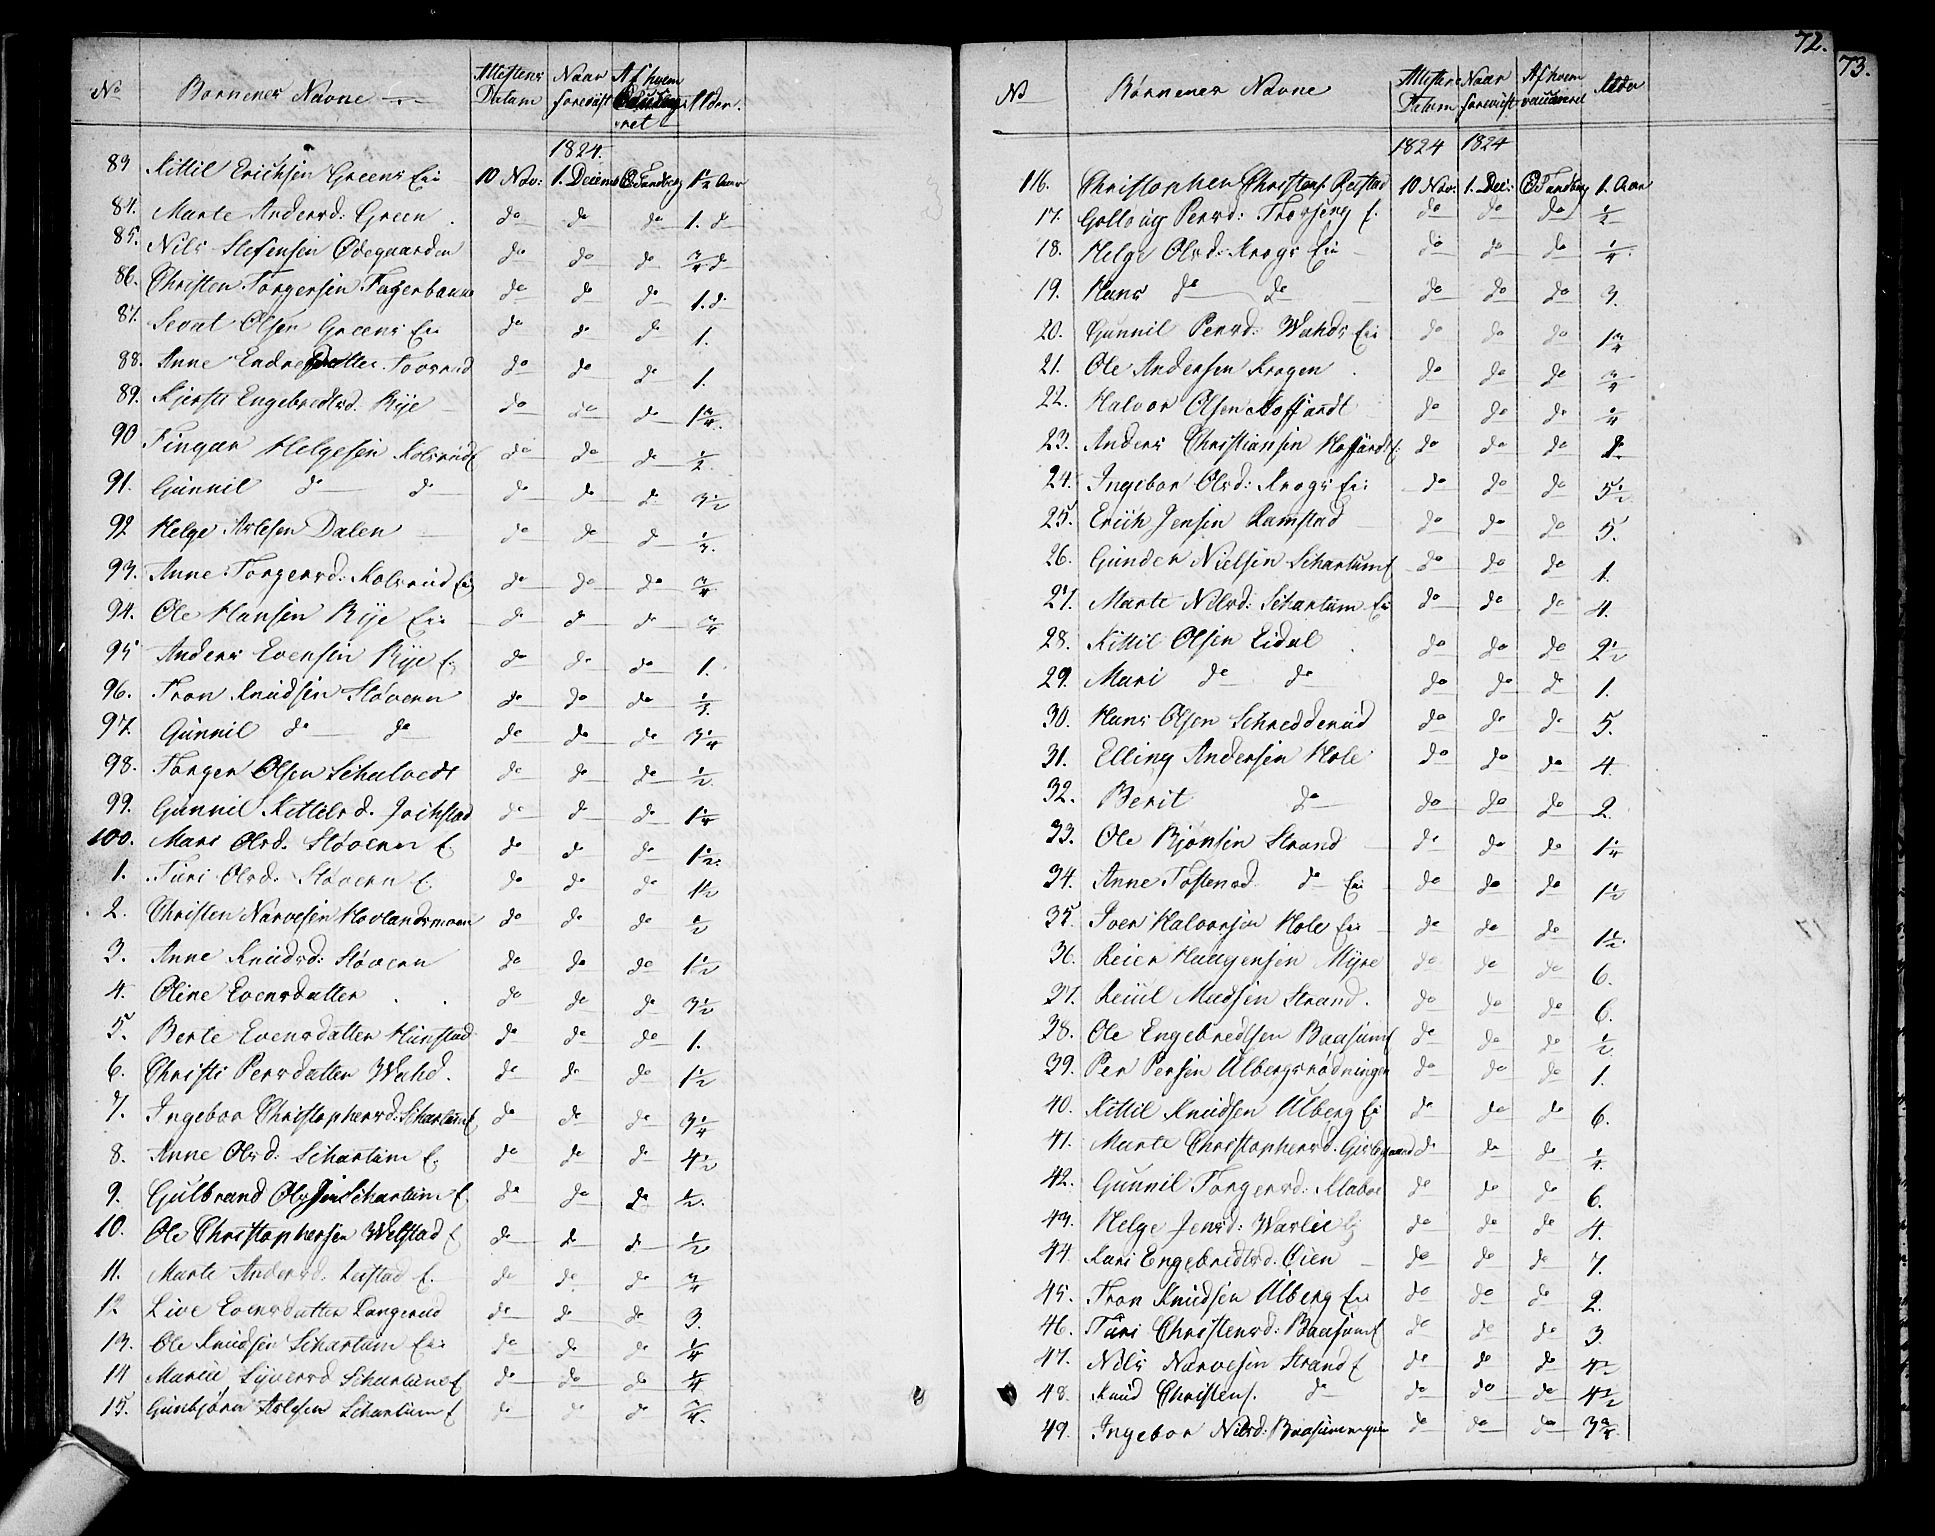 72.
73.
No Børnenes Navne Attestens Datum Naar foreviist Af hvem vret Alder.
1824.
83 Kittil Erichsen Greens Eie 10 Nov: 1. Decemb OTandberg 1½ Aar
84. Marte Andersd: Green do do do 1. do
85. Nils Stefensen Ødegaarden do do do ¾ do
86. Christen Torgersen Fagerbakke do do do 1. do
87. Sevat Olsen Greens Eie do do do 1.
88. Anne Endresdatter Toverud do do do 1.
89. Kjersti Engebredtsd. Rye do do do 1¾.
90 Fingar Helgesen Kolsrud E do do do ½
91. Gunnil do do do do do 3½
92 Helge Aslesen Dalen do do do
93. Anne Torgersd: Kolsrud Eie do do do ¾
94. Ole Hansen Rye Eie do do do ¾
95 Anders Evensen Rye E. do do do 1.
96. Tron Knudsen Støvern do do do
97. Gunnil do do do do do 3¼
98. Torger Olsen Schalvedt do do do ½
99. Gunnil Kittilsd. Jothstad do do do 1¼
100. Mari Olsd. Støvern E. do do do 1½
1. Turi Olsd. Støvern E. do do do 1½
2. Christen Narvesen Hovlandsmoen do do do ½
3. Anne Knudsd: Støvern do do do 1½
4. Oline Evensdatter do do do 3½
5. Berte Evensdatter Hunstad do do do 1.
6. Christi Persdatter Wahd. do do do 1½
7. Ingebor Christophersd: Schartum E do do do 3¼
8. Anne Olsd: Schartum E. do do do 4½
9. Gulbrand Olsen Schartum E. do do do ½.
10. Ole Christophersen Welstad E do do do ½
11. Marte Andersd. Leistad E. do do do ¾
12 Live Evensdatter Langerud do do do 3.
13. Ole Knudsen Schartum Eie do do do ¼
14 Marie Syversd Schartum E do do do ¼
15. Gunbjørn Aslesen Schartum E do do do ¾.
No Børnenes Navne Attestens Datum Naar foreviist Af hvem vaccineret Alder
1824 1824
116. Christopher Christens. Restad 10 Nov: 1. Dec: OTandberg 1. Aar
17. Gollaug Persd: Thorseng E. do do do ½
18. Helge Olsd: Krogs Eie do do do ¼.
19. Hans do do do do do 3.
20. Gunnil Persd: Wahds Eie do do do 1¾
21. Ole Andersen Krogen do do do ¾
22. Halvor Olsen Hoffardt do do do ¼
23. Anders Christiansen Hoffardt E. do do do
24. Ingebor Olsd: Krogs Eie do do do 5½
25. Erich Jensen Ramstad do do do 5.
26. Gunder Nielsen Schartum E do do do 1.
27. Marte Nilsd: Schartum Eie do do do 4.
28. Kittil Olsen Eidal do do do 2½
29. Mari do do do do do 1.
30. Hans Olsen Schredderud do do do 5.
31. Elling Andersen Hole do do do 4.
32. Berit do do do do 2.
33. Ole Bjønsen Strand do do do 1¼
34. Anne Tostensd. do Eie do do do 1½
35. Iver Halvorsen Hole Eie do do do 1½.
36. Reier Haagensen Myre do do do 6.
37. Madsen Strand. do do do 6.
38. Ole Engebredtsen Baasum E do do do ½
39. Per Persen Ulbergsrødningen do do do 1.
40. Kittil Knudsen Ulberg Ei do do do 6.
41. Marte Christophersd. do do do
42. Gunnil Torgersd: do do do 6.
43. Helge Jensd: Warlie E do do do 4.
44. Kari Engebredtsd. Øien do do do 7.
45. Tron Knudsen Ulberg Eie do do do 2.
46. Turi Christensd: Baasum E do do do 3
47. Nils Narvesen Strand E do do do 4½
48. Knud Christens. do do do do 4½
49. Ingebor Nilsd: do do do 3¾.